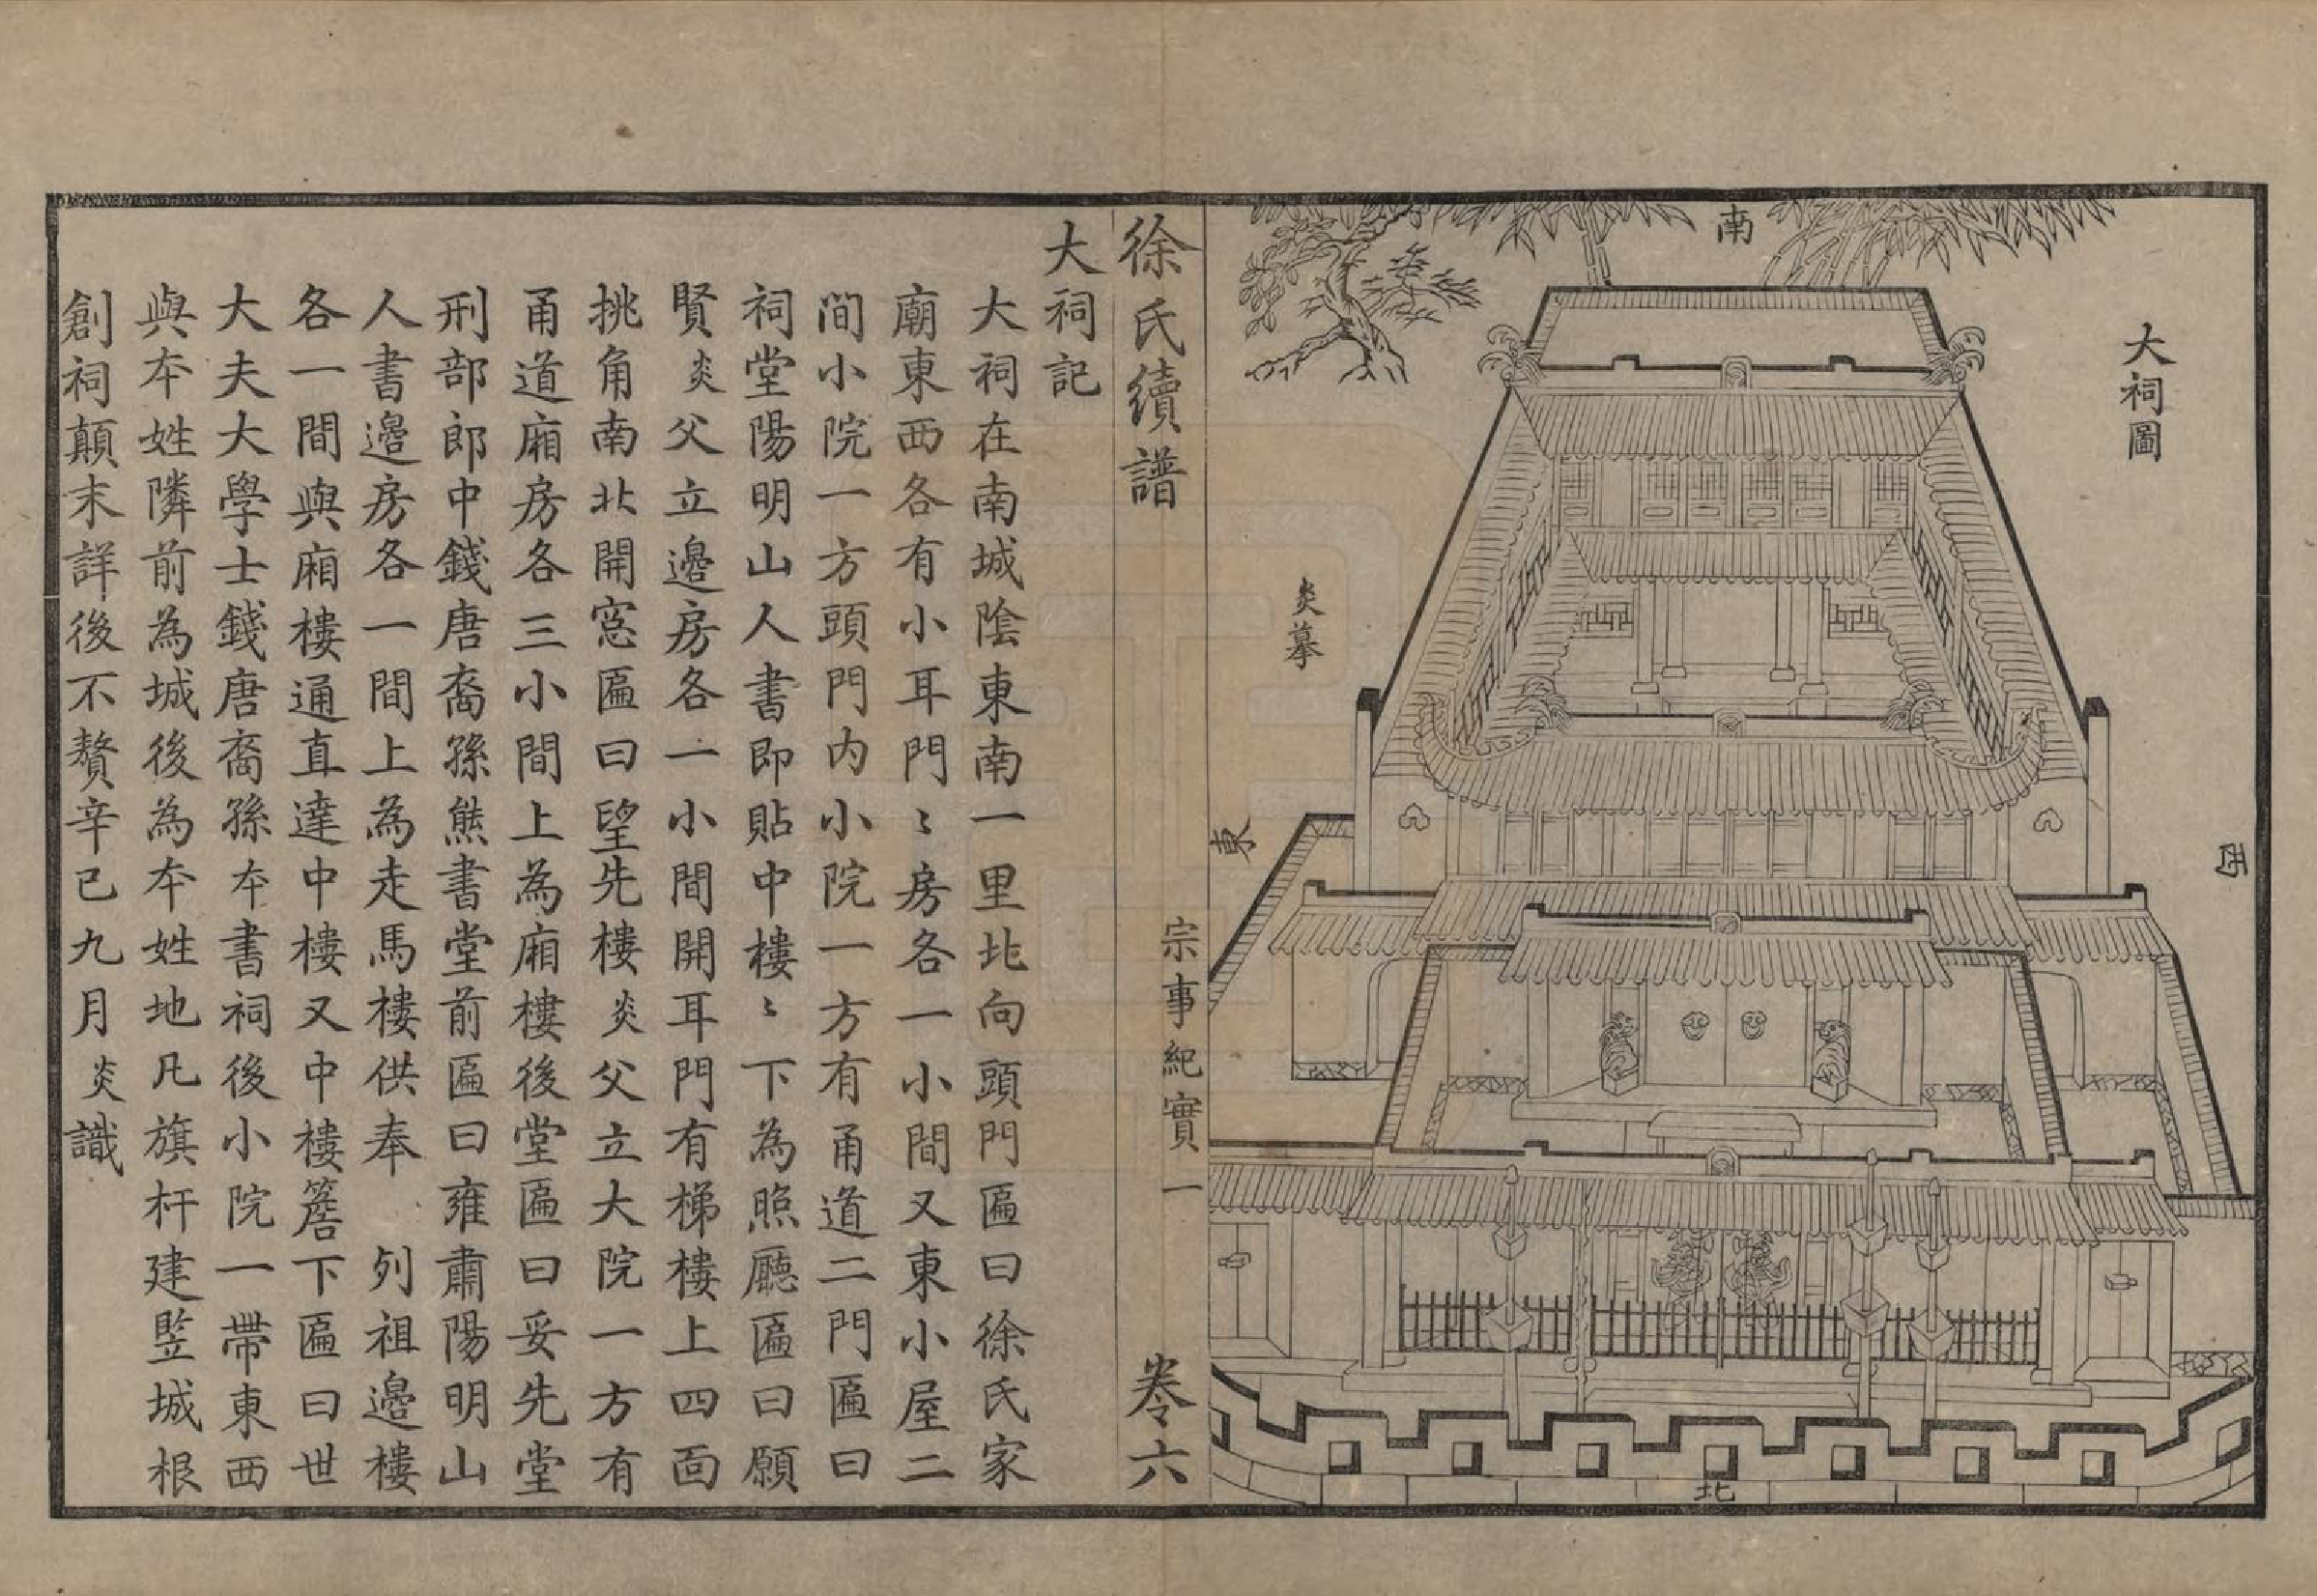 大祠圖
南
西
炎摹
東
北
徐氏續譜
宗事紀實一
卷六
大祠記
大祠在南城陰東南一里北向頭門匾曰徐氏家
廟東西各有小耳門〻房各一小間又東小屋二
間小院一方頭門内小院一方有甬道二門匾曰
祠堂陽明山人書即貼中樓〻下為照廳匾曰願
賢炎父立邊房各一小間開耳門有梯樓上四面
挑角南北開窓匾曰望先樓炎父立大院一方有
甬道廂房各三小間上為廂樓後堂匾曰妥先堂
刑部郎中錢唐裔孫熊書堂前匾曰雍肅陽明山
人書邊房各一間上為走馬樓供奉　列祖邊樓
各一間與廂樓通直達中樓又中樓簷下匾曰世
大夫大學士錢唐裔孫本書祠後小院一帶東西
與本姓隣前為城後為本姓地凡旗杆建竪城根
創祠顛末詳後不贅辛已九月炎識